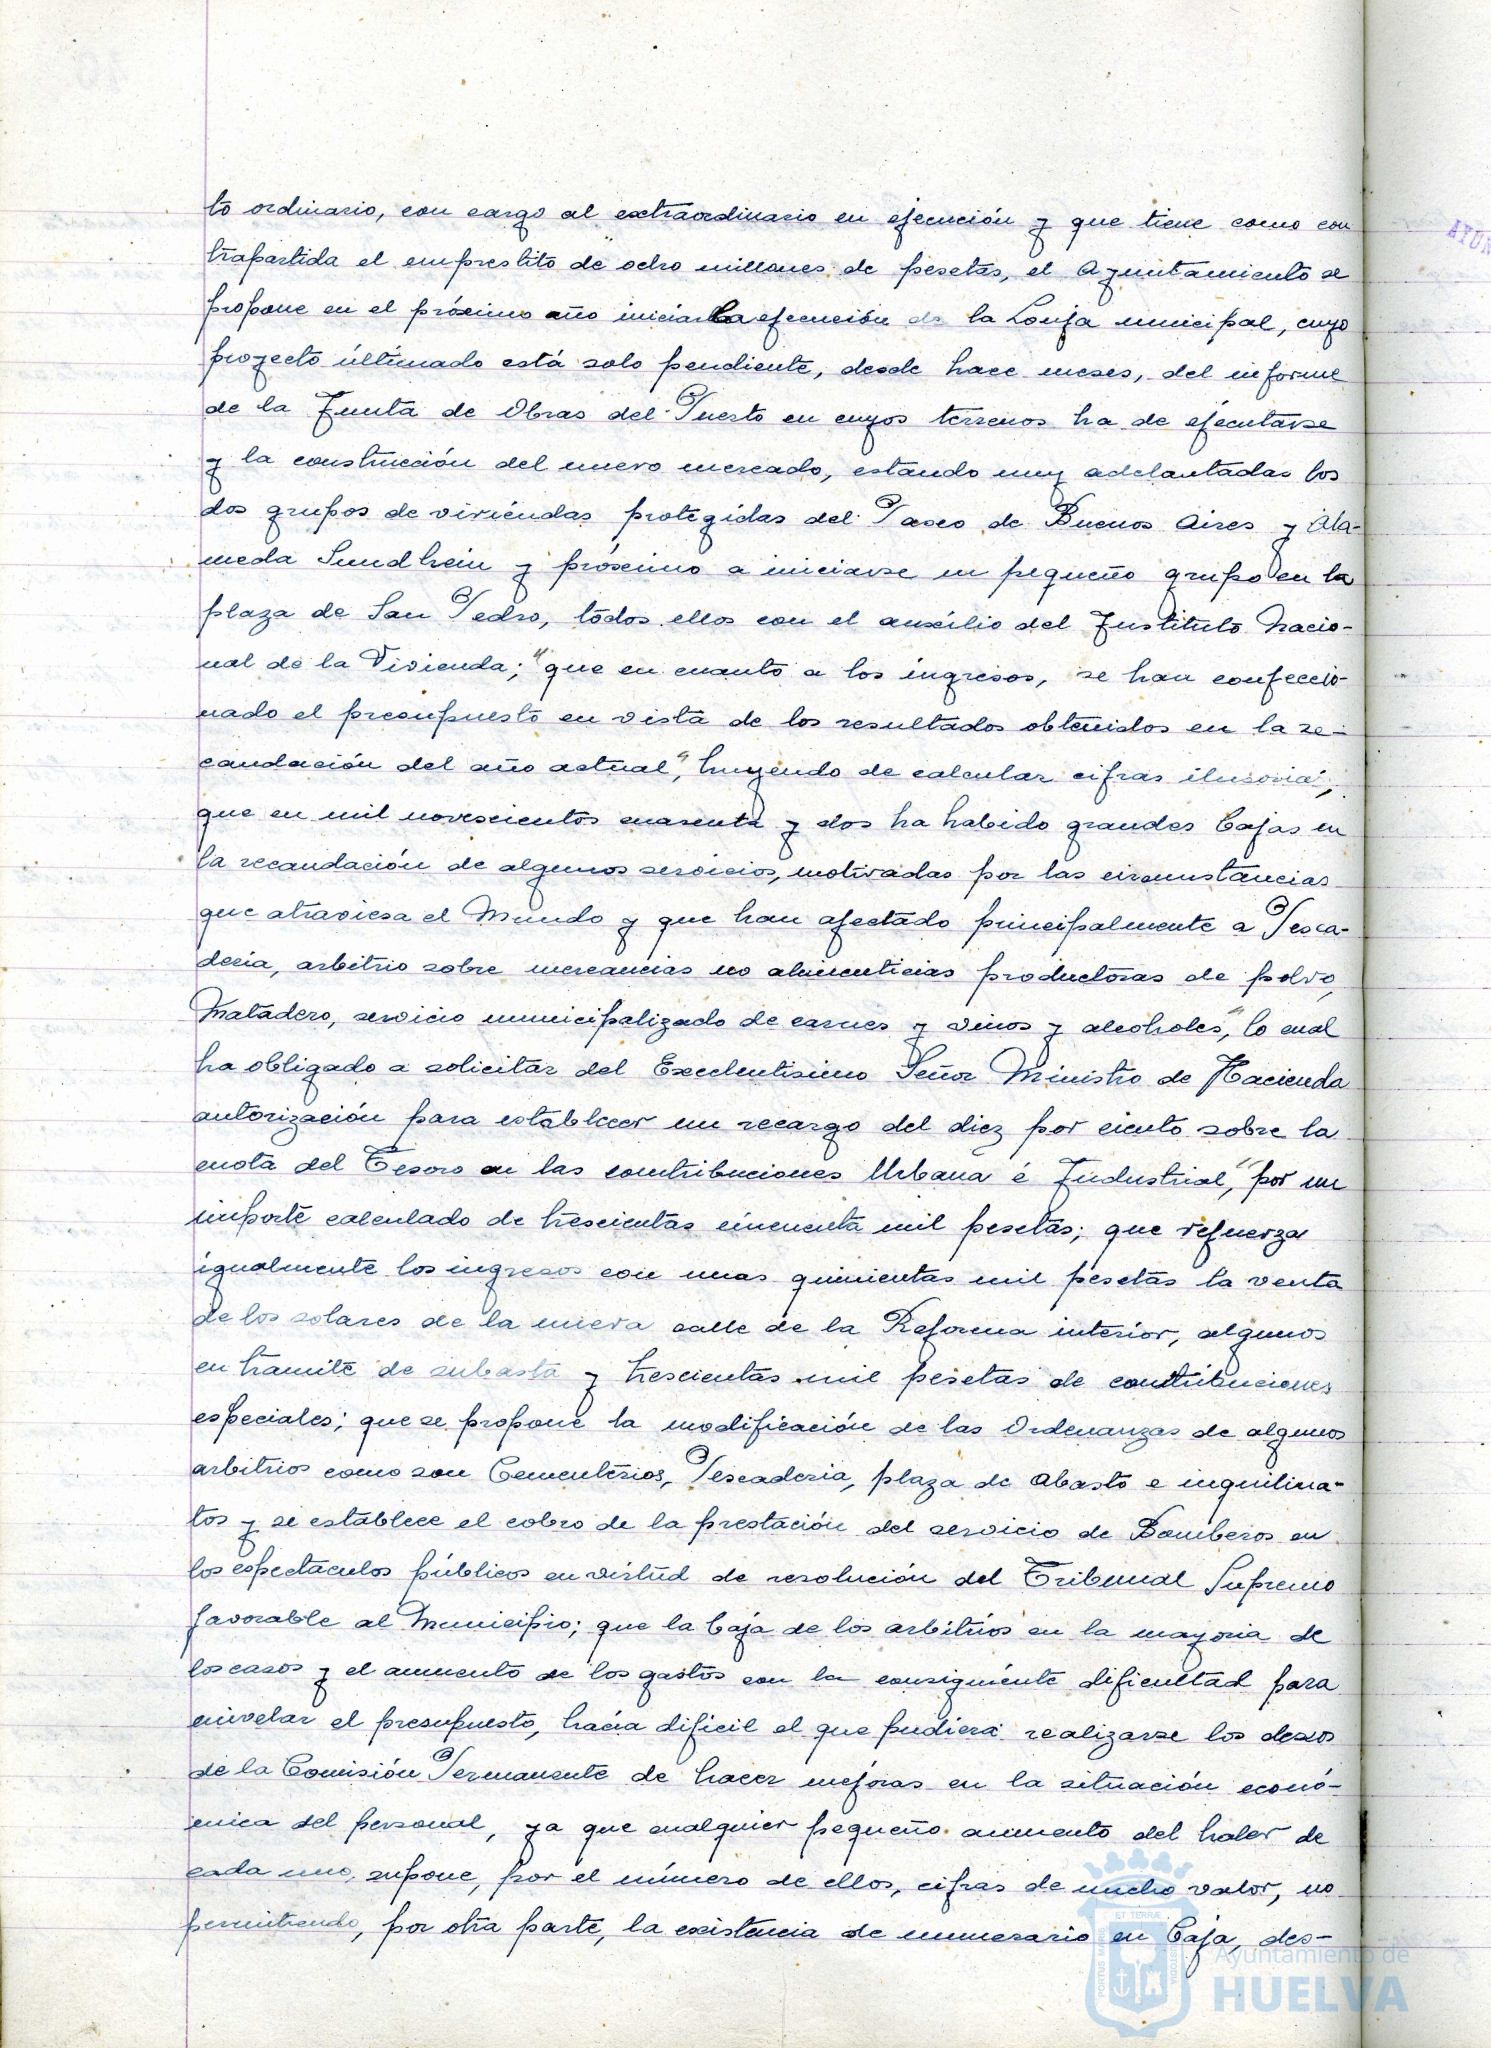 to ordinario, con cargo al extraordinario en ejecución y que tiene como con
trapartida el emprestito de ocho millones de pesetas, el Ayuntamiento se
propone en el próximo año iniciar la ejecución de la Lonja municipal, cuyo
proyecto últimado está solo pendiente, desde hace meses, del informe
de la Junta de Obras del Puerto en cuyos terrenos ha de ejecutarse
y la construcción del nuevo mercado, estando muy adelantadas los
dos grupos de viviendas protegidas del Paseo de Buenos Aires y Ala-
meda Sundhein y próximo a iniciarse un pequeño grupo en la
plaza de San Pedro, todos ellos con el auxilio del Instituto Nacio-
nal de la Vivienda; "que en cuanto a los ingresos, se han confeccio-
nado el presupuesto en vista de los resultados obtenidos en la re-
caudación del año actual", huyendo de calcular cifras ilusorias;
que en mil novescientos cuarenta y dos ha habido grandes bajas en
la recaudación de algunos servicios, motivadas por las circunstancias
que atraviesa el Mundo y que han afectado principalmente a Pesca-
deria, arbitrio sobre mercancias no alimenticias productoras de polvo,
Matadero, servicio municipalizado de carnes y vinos y alcoholes", lo cual
ha obligado a solicitar del Excelentisimo Señor Ministro de Hacienda
autorización para establecer un recargo del diez por ciento sobre la
cuota del Tesoro en las contribuciones Urbana é Industrial", por un
importe calculado de trescientas cincuenta mil pesetas; que refuerza
igualmente los ingresos con unas quinientas mil pesetas la venta
de los solares de la nueva calle de la Reforma interior, algunos
en tramite de subasta y trescientas mil pesetas de contribuciones
especiales; que se propone la modificación de las Ordenanzas de algunos
arbitrios como son Cementerios, Pescaderia, plaza de Abasto e inquilina-
tos y se establece el cobro de la prestación del servicio de Bomberos en
los espectaculos públicos en virtud de resolución del Tribunal Supremo
favorable al Municipio; que la baja de los arbitrios en la mayoria de
los casos y el aumento de los gastos con la consiguiente dificultad para
nivelar el presupuesto, hacia dificil el que pudiera realizarse los deseos
de la Comisión Permanente de hacer mejoras en la situación econó-
mica del personal, ya que cualquier pequeño aumento del haber de
cada uno, supone, por el número de ellos, cifras de mucho valor, no
permitiendo, por otra parte, la existencia de numerario en Caja, des-
AYUN
PORTUS MARIS
ET TERRÆ
CUSTODIA
Ayuntamiento de
HUELVA